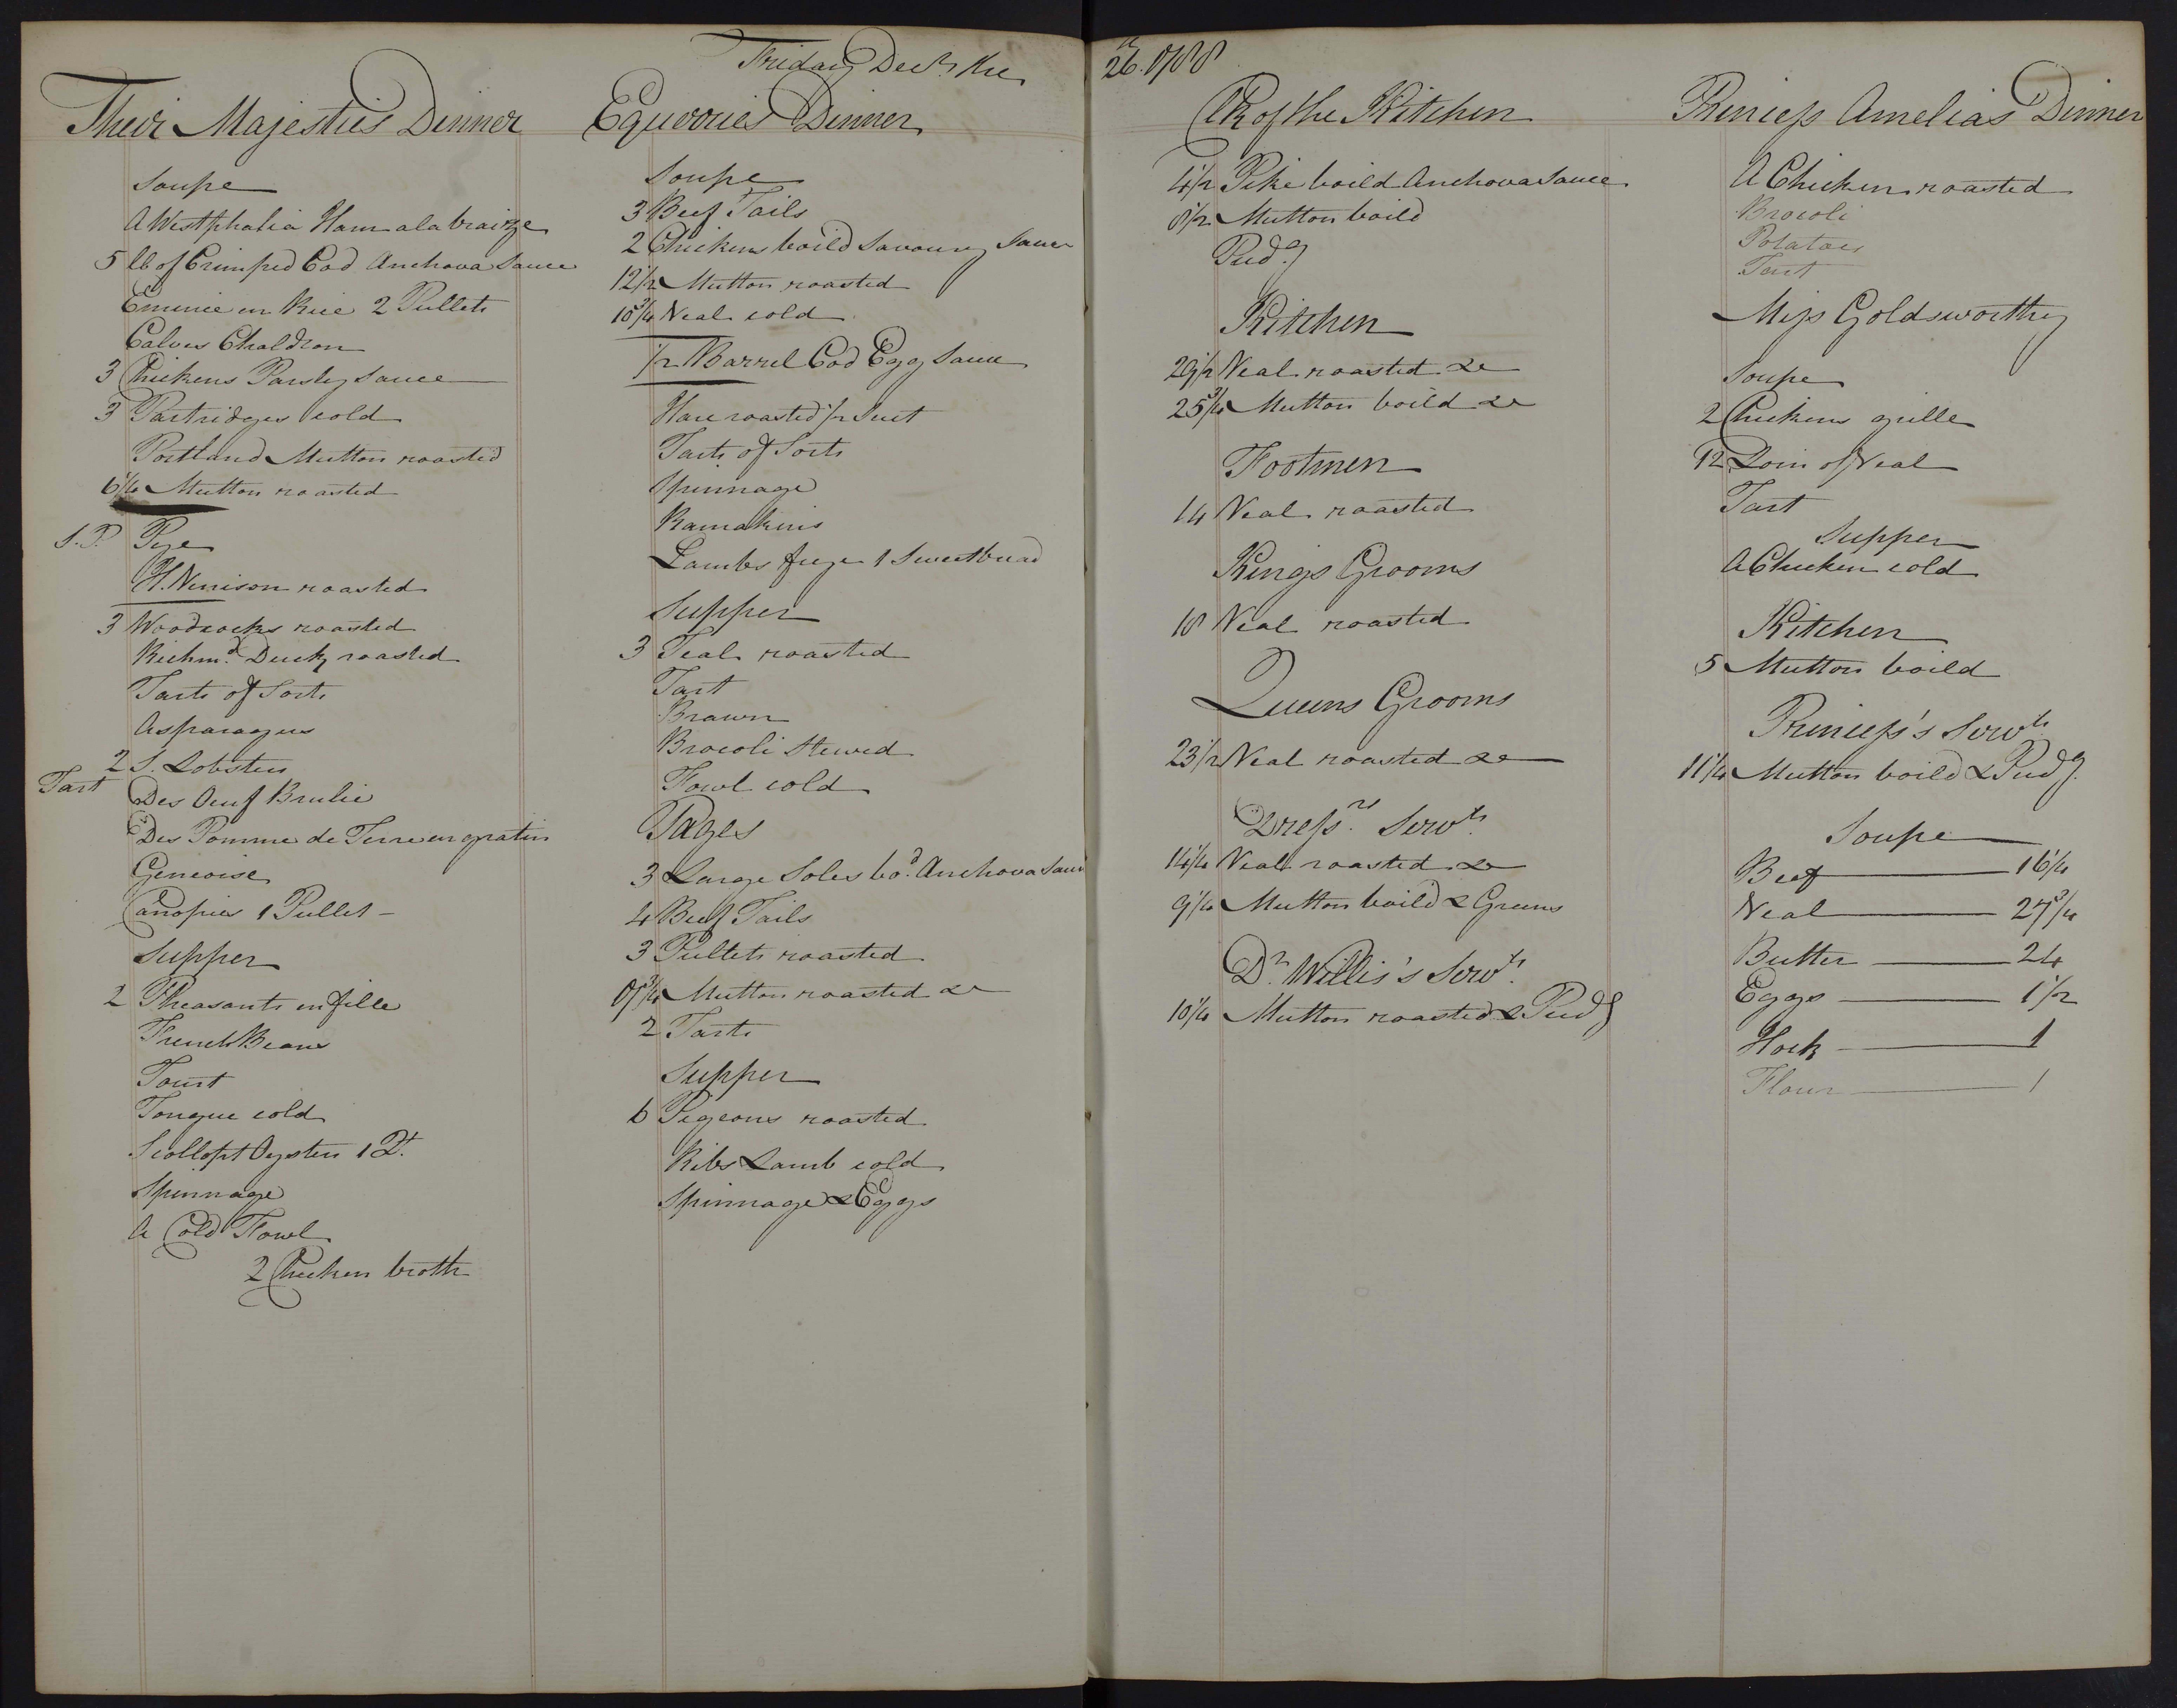 Friday Decbr. the 26th. 1788
Their Majesties Dinner
Soupe
A Westphalia Ham ala braize
5 lb of Crimped Cod Anchova Sauce
Emmie en Rice 2 Pullets
Calves Chaldron
3 Chickens Parsley Sauce
3 Partridges cold
Portland Mutton roasted
6 1/4 Mutton roasted
S.P. Pye
H. Venison roasted
3 Woodcocks roasted
Richmd. Duck roasted
Tarts of Sorts
Asparagus
2 S. Lobsters
Tart Des Oeuf Brulie
Des Pomme de Terre en gratin
Genioise
Canopies 1 Pullet -
Supper
2 Pheasants en fille
French Beans
Tourt
Tongue cold
Scollopt Oysters 1 Dt.
Spinnage
A Cold Fowl
2 Chicken broth
Equerries Dinner
Soupe
3 Beef Tails
2 Chickens boild Savoury Sauce
12 1/2 Mutton roasted
10 3/4 Veal cold
1/2 Barrel Cod Egg Sauce
Hare roasted 1/2 Suet
Tarts of Sorts
Spinnage
Ramakins
Lambs frye 1 Sweetbread
Supper
3 Teal roasted
Tart
Brawn
Brocoli Stewed
Fowl cold
Pages
3 Large Soles bod. Anchova Sauce
4 Beef Tails
3 Pullets roasted
8 3/4 Mutton roasted &c
2 Tarts
Supper
6 Pigeons roasted
Ribs Lamb cold
Spinnage & Eggs
Clk of the Kitchen
4 1/2 Pike boild Anchova Sauce
8 1/2 Mutton boild
Pudg
Kitchen
29 1/2 Veal roasted &c
25 3/4 Mutton boild &c
Footmen
14 Veal roasted
Kings Grooms
18 Veal roasted
Queens Grooms
23 1/2 Veal roasted &c
Dressrs. Servts.
14 1/4 Veal roasted &c
9 1/4 Mutton boild & Greens
Dr. Willis's Servts.
10 1/4 Mutton roasted & Pudg
Princess Amelias Dinner
A Chicken roasted
Brocoli
Potatoes
Tart
Miss Goldsworthy
Soupe
2 Chickens grille
12 Loin of Veal
Tart
Supper
A Chicken cold
Kitchen
5 Mutton boild
Princess's Servts.
11 1/4 Mutton boild & Pudg.
Soupe
Beef 16 1/4
Veal 27 3/4
Butter 24
Eggs 1 1/2
Hock 1
Flour 1